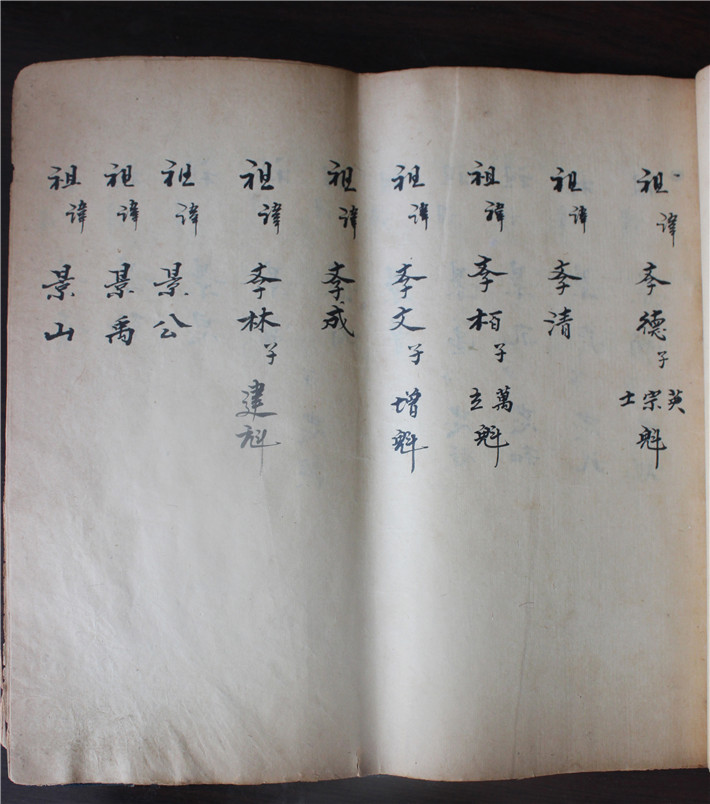 祖諱李德子英宗士魁
祖諱李清
祖諱李栢子萬立魁
祖諱李文子增魁
祖諱李成
祖諱李林子建科
祖諱景公
祖諱景禹
祖諱景山